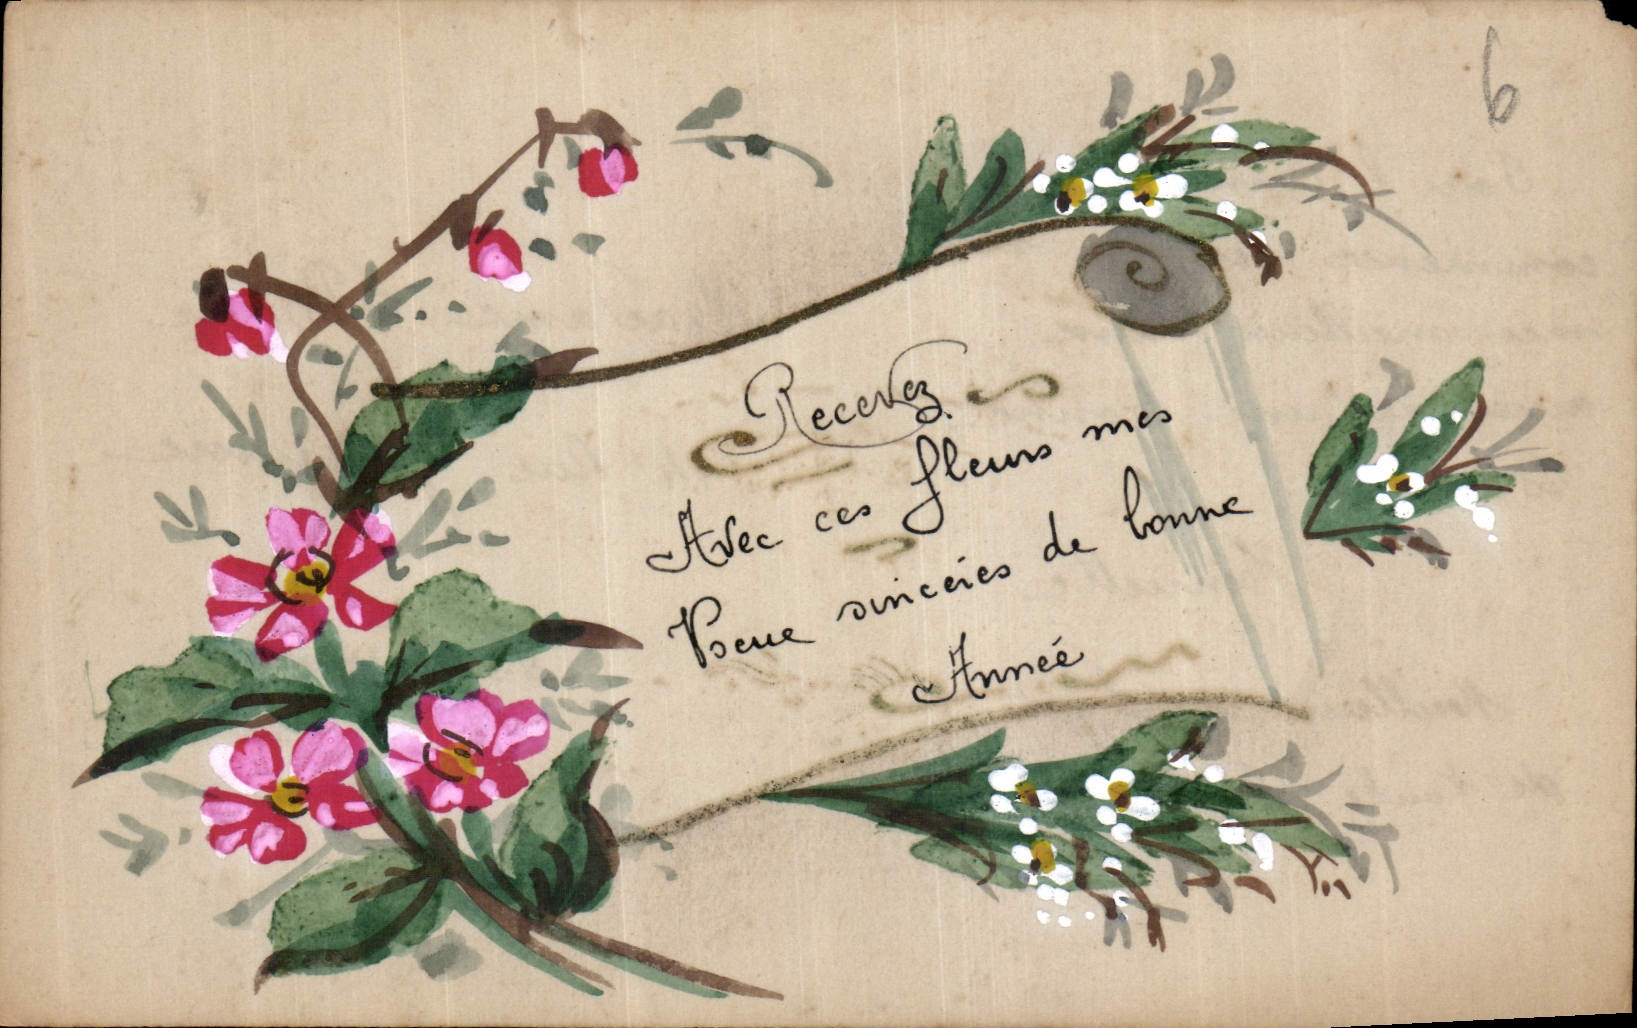 6
Recevez
Avec ces fleurs mes
Voeue sincéies de bonne
Anneé